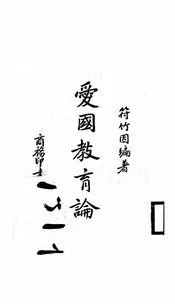 符竹因編著
愛國教育論
商務印